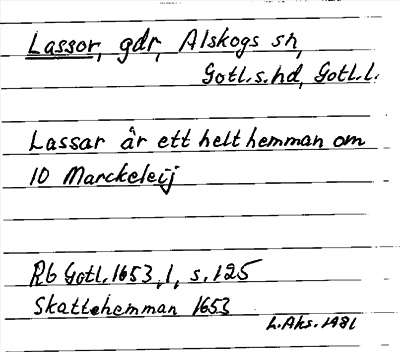 Lassor, gdr, Alskogs sn,
Gotl.s.hd, Gotl.l.
Lassar är ett helt hemman om
10 Marckeleij
Rb Gotl. 1653, 1, s. 125
Skattehemman 1653
L.Aks. 1981